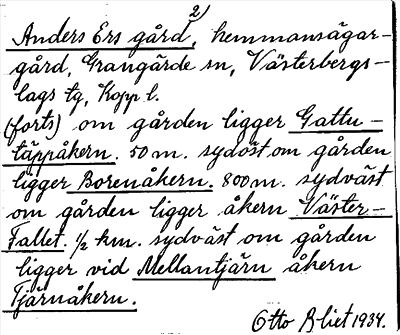 2)
Anders Ers gård, hemmansägar-
gård, Grangärde sn, Västerbergs-
lags tg, Kopp l.
(forts) om gården ligger Gattu-
täppåkern. 50 m. sydöst om gården
ligger Borenåkern. 800 m. sydväst
om gården ligger åkern Väster-
Fallet. ½ km. sydväst om gården
ligger vid Mellantjärn åkern
Tjärnåkern.
Otto B-liet 1934.